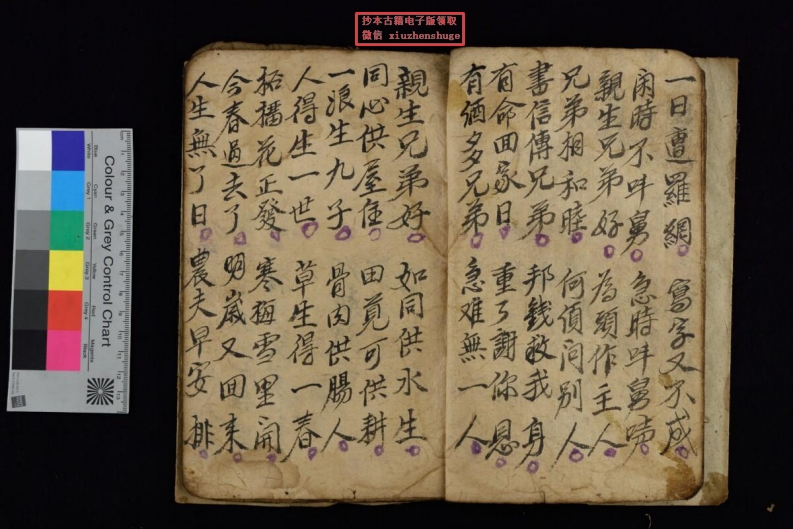 抄本古籍电子版领取
微信 xiuzhenshuge
一日遭羅網 寫字又不成
閑時不吽舅 急時吽舅
親生兄弟好 為頭作主人
兄弟相和睦 何須问别人
書信傳兄弟 邦錢救我身
有命回家日 重了謝你恩
有酒多兄弟 急难無一人
親生兄弟好 如同供水生
同心供屋住 田可供耕
一浪生九子 骨肉供腸人
人得生一世 草生得一春
花正發 寒梅雪里開
今春過去了 明歲又回来
人生無了日 農夫早安排
Colour & Grey Control Chart
Blue
Cyan
Green
Yellow
Red
Magenta
White
Grey 1
Grey 2
Grey 3
Grey 4
Black